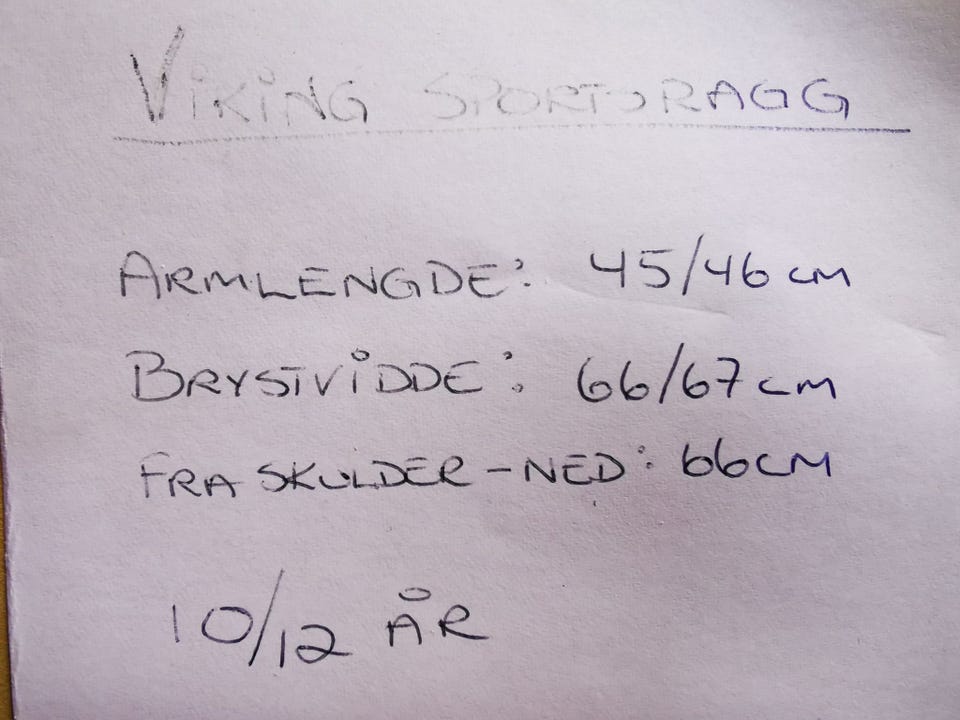 VIKING SPORTSRAGG
ARMLENGDE: 45/46 CM
BRYSTVIDDE: 66/67 CM
FRA SKULDER - NED: 66 CM
10/12 ÅR